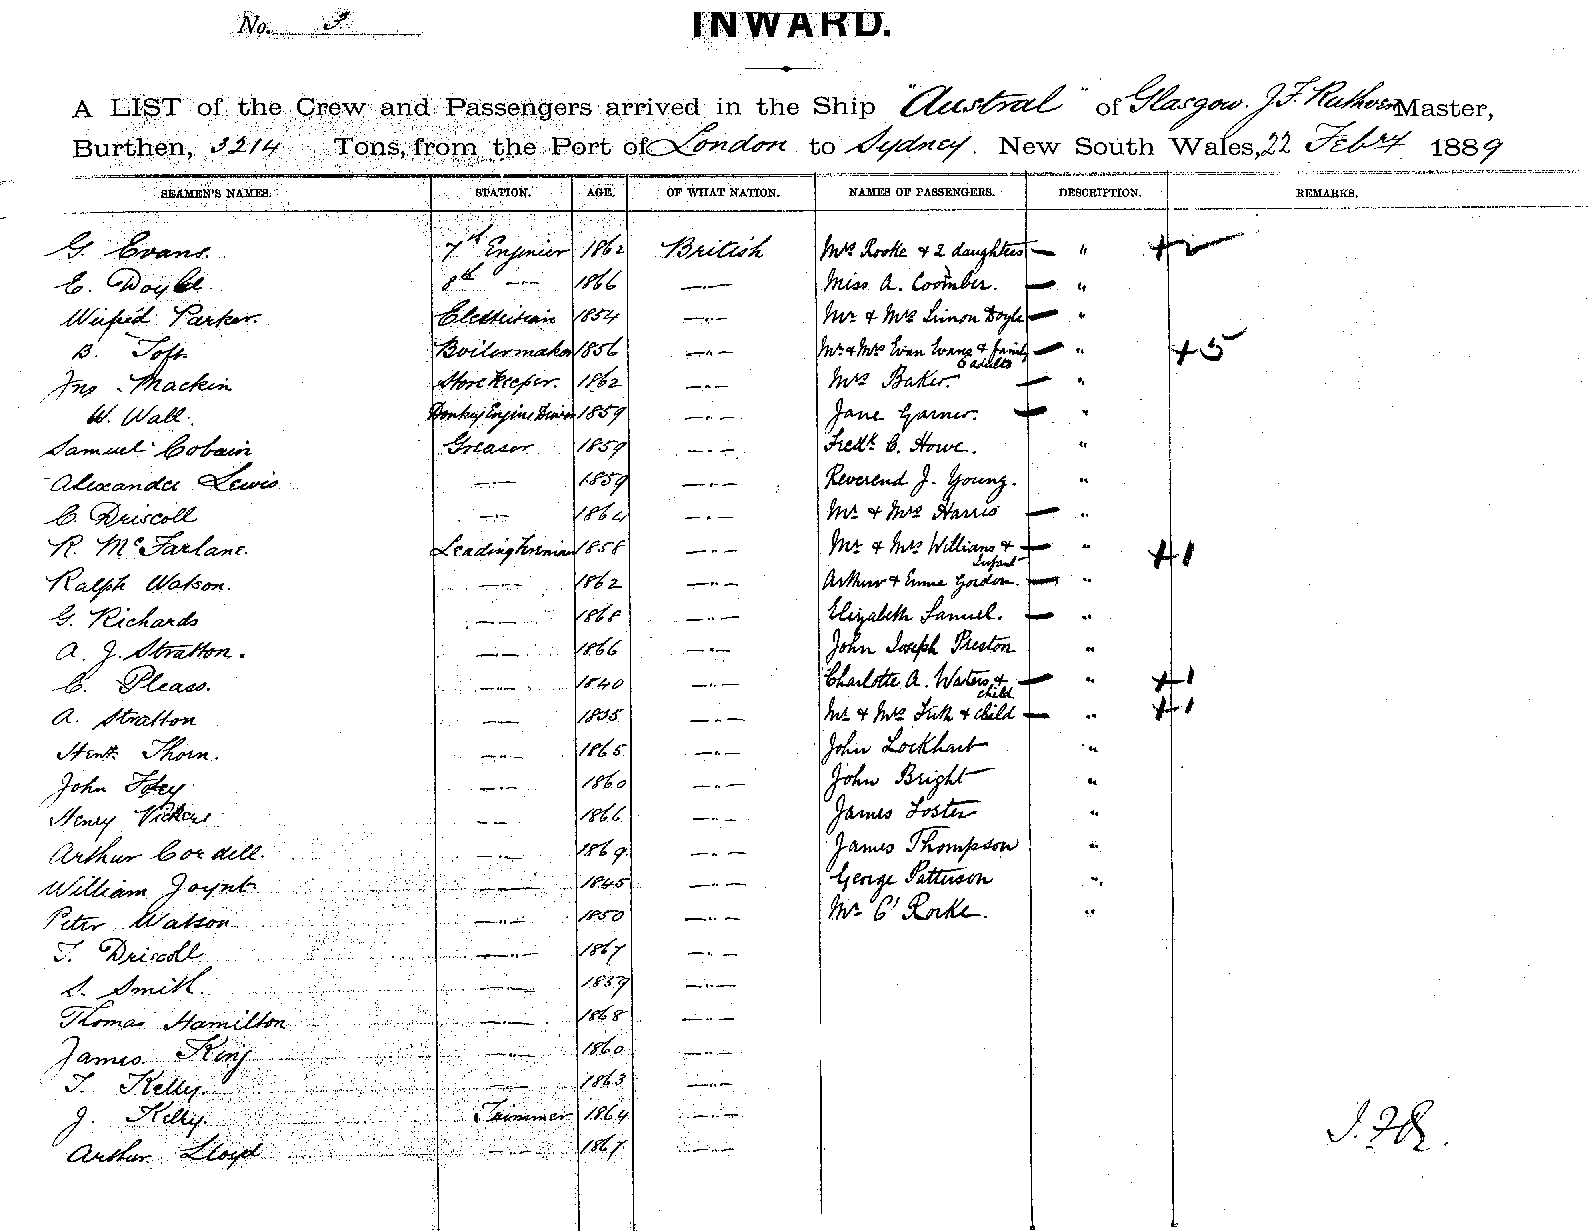 No. 3
INWARD.
A LIST of the Crew and Passengers arrived in the Ship "Austral" of Glasgow. J. F. Ruthven Master,
Burthen, 3214 Tons, from the Port of London to Sydney. New South Wales, 22 Feby 1889
SEAMEN'S NAMES. STATION. AGE. OF WHAT NATION. NAMES OF PASSENGERS. DESCRIPTION. REMARKS.
G. Evans. 7th Engineer 1862 British Mrs Rooke & 2 daughters — " +2
E. Doyle 8th — 1866 —"— Miss A. Coomber. — "
Wilfred Parker. Electrician 1854 —"— Mr & Mrs Simon Doyle — "
B. Toft Boilermaker 1856 —"— Mr & Mrs Evan Evans & family — " +5
5 adults
Jno Mackin Storekeeper. 1862 —"— Mrs Baker. — "
W. Wall. Donkey Engine Driver 1859 —"— Jane Garner. — "
Samuel Cobain Greaser 1859 —"— Fredk C. Howe. "
Alexander Lewis —"— 1859 —"— Reverend J. Young. "
C. Driscoll —"— 1864 —"— Mr & Mrs Harris — "
R. McFarlane. Leading Fireman 1858 —"— Mr & Mrs Williams & — " +1
Infant
Ralph Watson. —"— 1862 —"— Arthur & Emma Gordon. — "
G. Richards —"— 1868 —"— Elizabeth Samuel. — "
A. J. Stratton. —"— 1866 —"— John Joseph Preston "
C. Pleass. —"— 1840 —"— Charlotte A. Waters & — " +1
child
A. Stratton —"— 1835 —"— Mr & Mrs & child — " +1
Thorn. —"— 1865 —"— John Lockhart "
John —"— 1860 —"— John Bright "
Henry Vickers —"— 1866 —"— James Foster "
Arthur Cordell. —"— 1869 —"— James Thompson "
William Joynt —"— 1845 —"— George Patterson "
Peter Watson —"— 1850 —"— Mr O'Rorke. "
T. Driscoll —"— 1867 —"—
S. Smith. —"— 1859 —"—
Thomas Hamilton —"— 1868 —"—
James King —"— 1860 —"—
T. Kelly. —"— 1863 —"—
J. Kelly. Trimmer 1864 —"—
Arthur Lloyd —"— 1867 —"—
J. F. R.